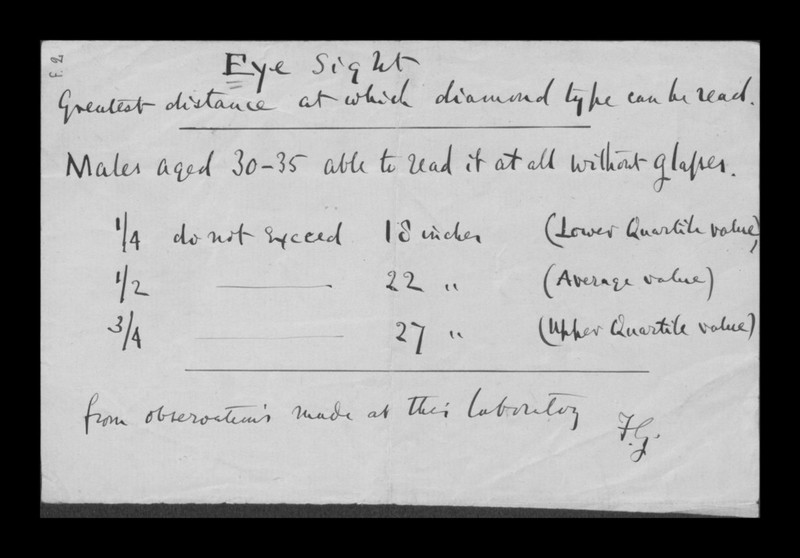 F. 2
Eye Sight
Greatest distance at which diamond type can be read.
Males aged 30-35 able to read it at all without glasses.
1/4 do not exceed 18 inches (Lower Quartile value)
1/2 —— 22 " (Average value)
3/4 —— 27 " (Upper Quartile value)
from observations made at this laboratory
F.G.